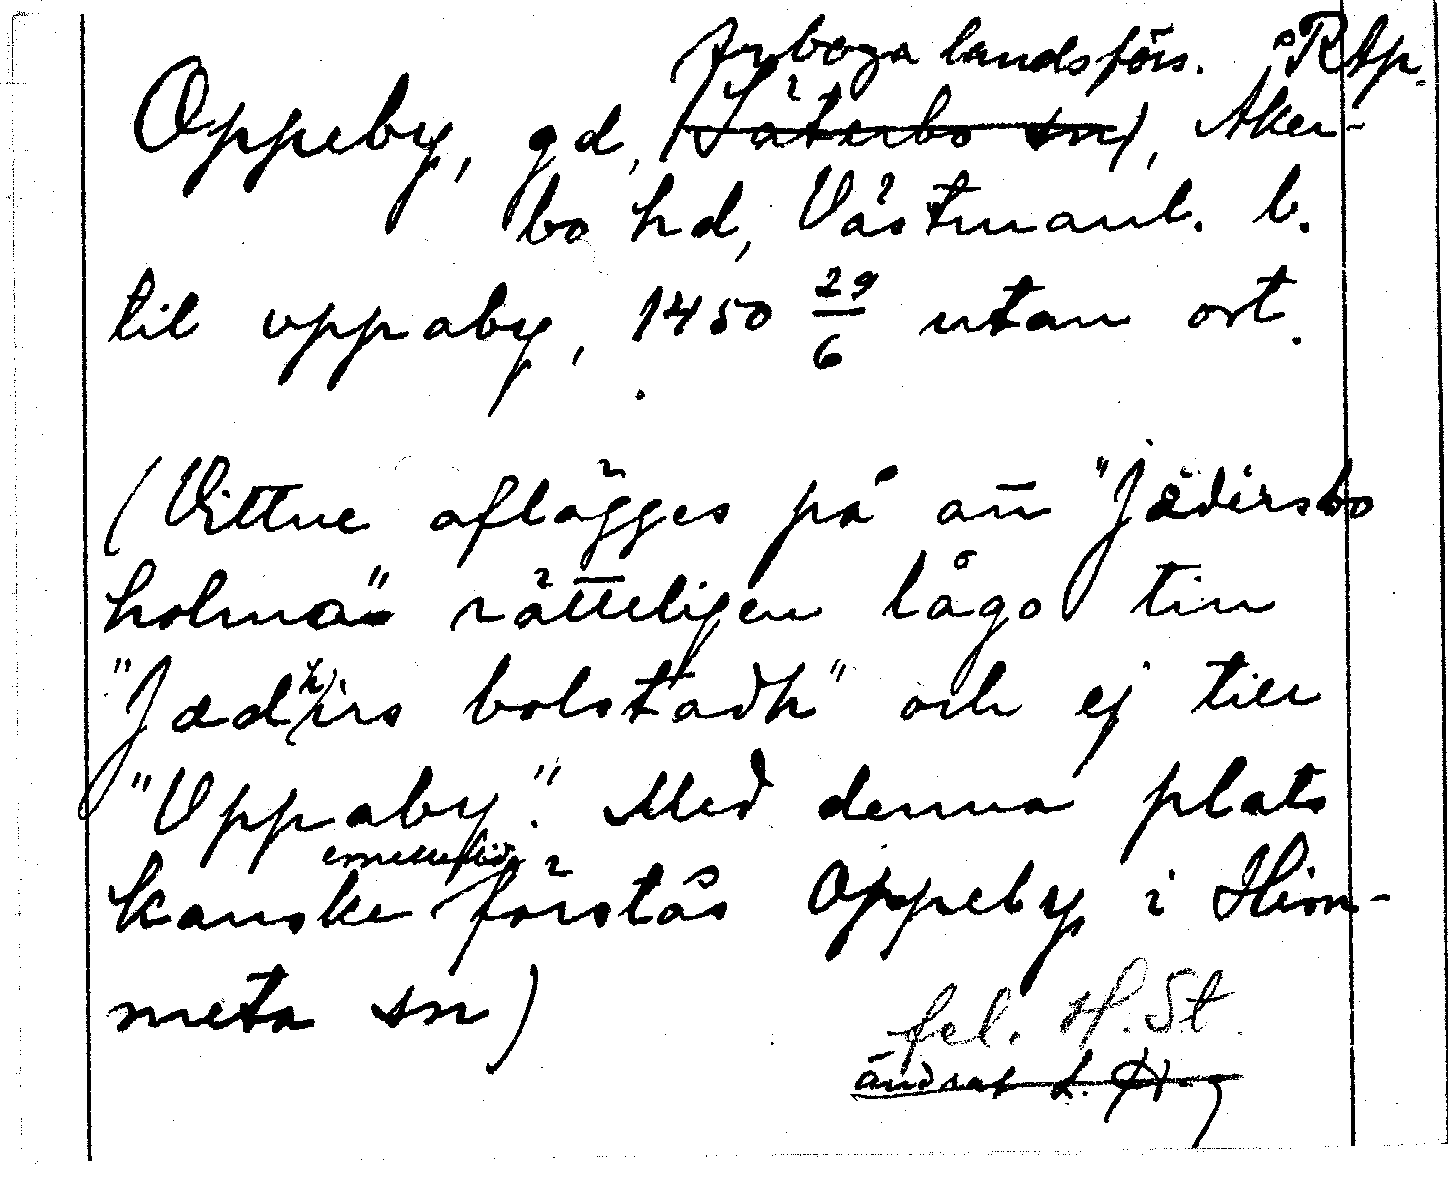 Arboga landsförs. RAp.
Oppeby, gd, (Säterbo sn), Aker-
bo hd, Västmanl. l.
til vppaby, 1450 29/6 utan ort.
(Vittne aflägges på att "Jædirsbo
holma" rätteligen lågo till
"Jædhirs bolstadh" och ej till
"Vppaby". Med denna plats
emellertid
kanske förstås Oppeby i Him-
meta sn)
fel. H. St.
ändrat